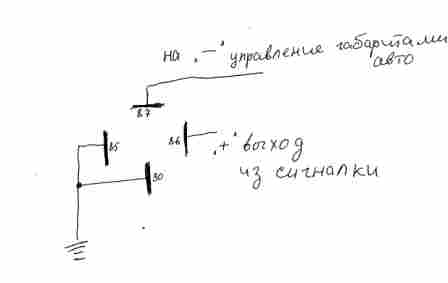 на "-" управление габаритами
авто
87
85
86
"+" выход
из сигналки
30